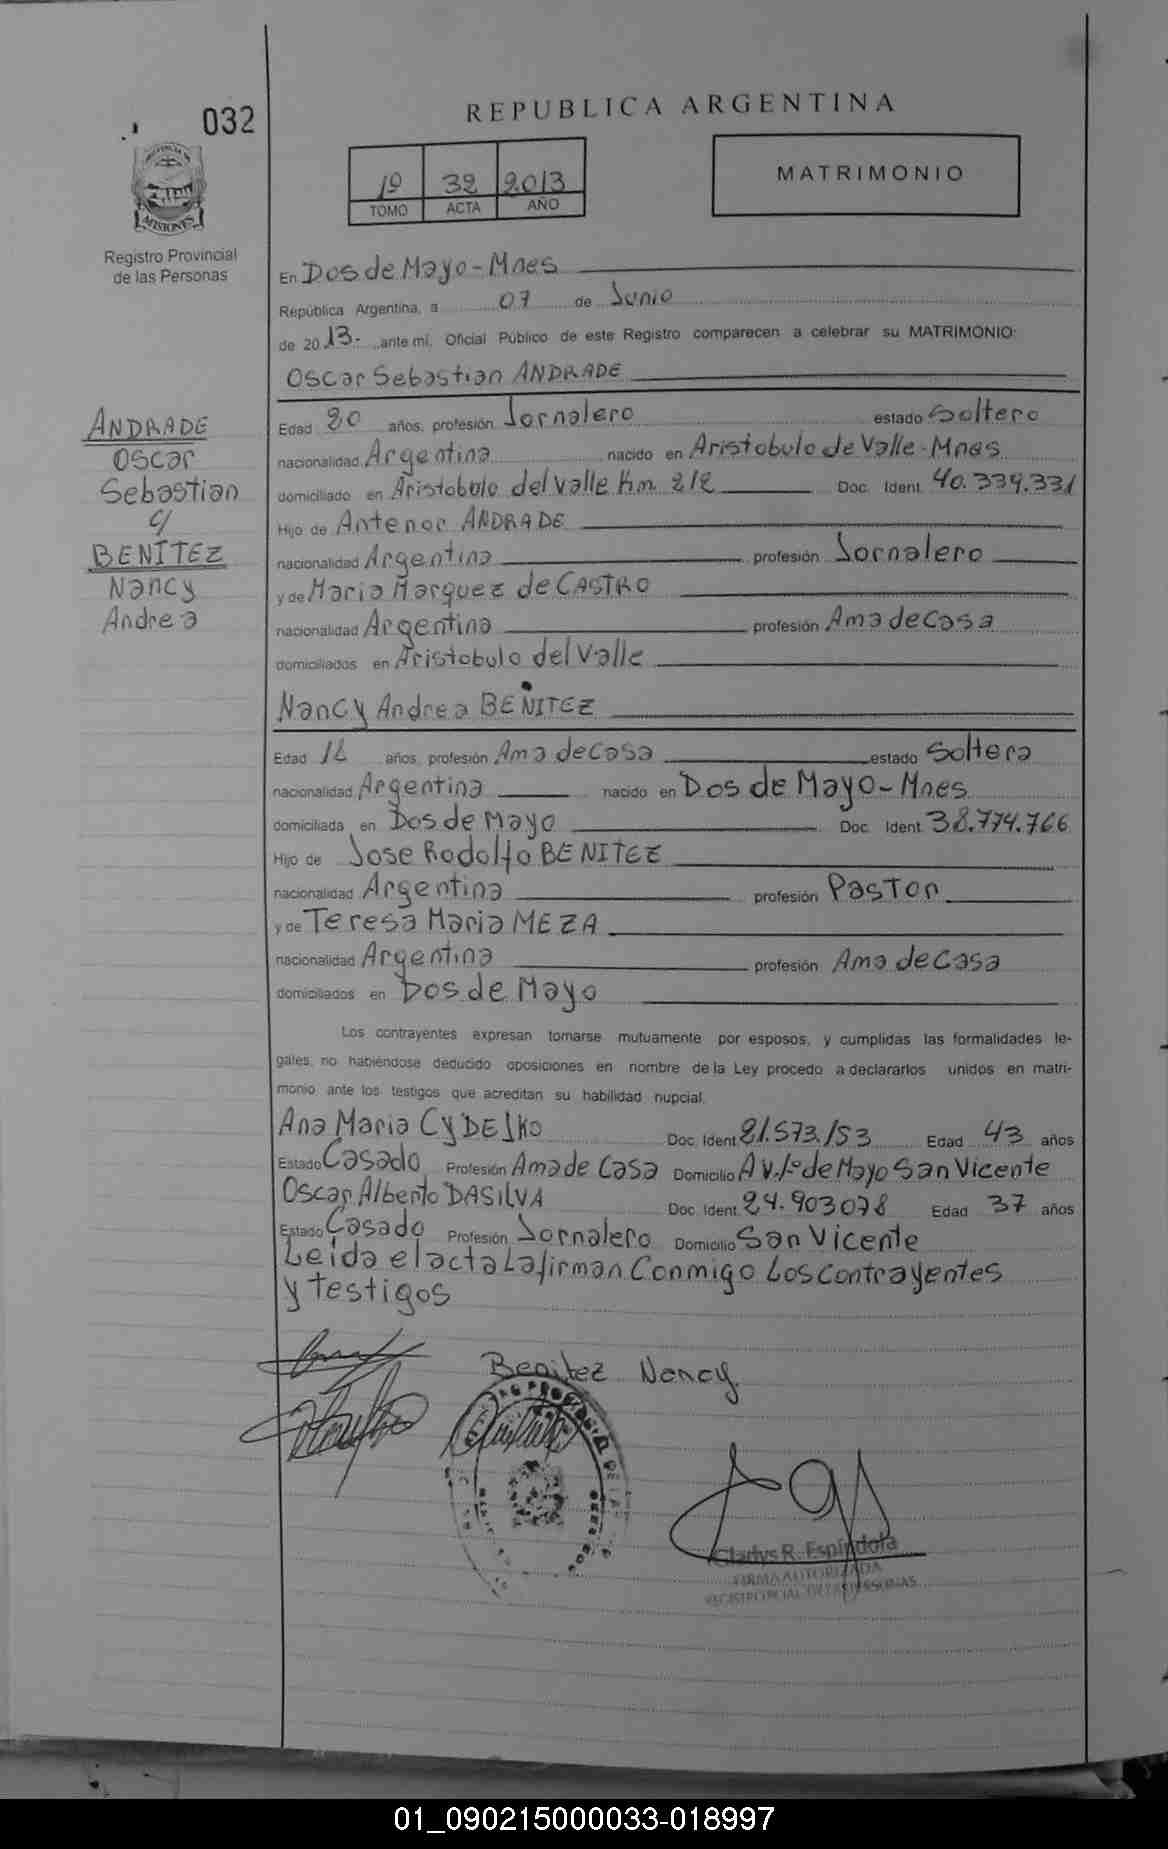 REPUBLICA ARGENTINA
032
1º 32 2013
TOMO ACTA AÑO
MATRIMONIO
PROVINCIA DE
MISIONES
Registro Provincial
de las Personas
En Dos de Mayo - Mnes
República Argentina, a 07 de Junio
de 2013.- ante mí, Oficial Público de este Registro comparecen a celebrar su MATRIMONIO:
Oscar Sebastian ANDRADE
ANDRADE
Oscar
Sebastian
c/
BENITEZ
Nancy
Andrea
Edad 20 años, profesión Jornalero estado Soltero
nacionalidad Argentina nacido en Aristobulo de Valle-Mnes
domiciliado en Aristobulo del Valle Km 212 Doc. Ident. 40.339.331
Hijo de Antenor ANDRADE
nacionalidad Argentina profesión Jornalero
y de Maria Marquez de CASTRO
nacionalidad Argentina profesión Ama de Casa
domiciliados en Aristobulo del Valle
Nancy Andrea BENITEZ
Edad años, profesión Ama de Casa estado Soltera
nacionalidad Argentina nacido en Dos de Mayo - Mnes
domiciliada en Dos de Mayo Doc. Ident. 38.774.766
Hijo de Jose Rodolfo BENITEZ
nacionalidad Argentina profesión Pastor
y de Teresa Maria MEZA
nacionalidad Argentina profesión Ama de Casa
domiciliados en Dos de Mayo
Los contrayentes expresan tomarse mutuamente por esposos, y cumplidas las formalidades le-
gales, no habiéndose deducido oposiciones en nombre de la Ley procedo a declararlos unidos en matri-
monio ante los testigos que acreditan su habilidad nupcial.
Ana Maria CYDEJKO Doc. Ident. 21.573.153 Edad 43 años
Estado Casado Profesión Ama de Casa Domicilio Av. 1º de Mayo San Vicente
Oscar Alberto DASILVA Doc. Ident. 24.903078 Edad 37 años
Estado Casado Profesión Jornalero Domicilio San Vicente
Leida el acta La firman Conmigo Los Contrayentes
y testigos
Benitez Nancy.
Gladys R. Espíndola
FIRMA AUTORIZADA
REGISTRO PCIAL. DE LAS PERSONAS
01_090215000033-018997